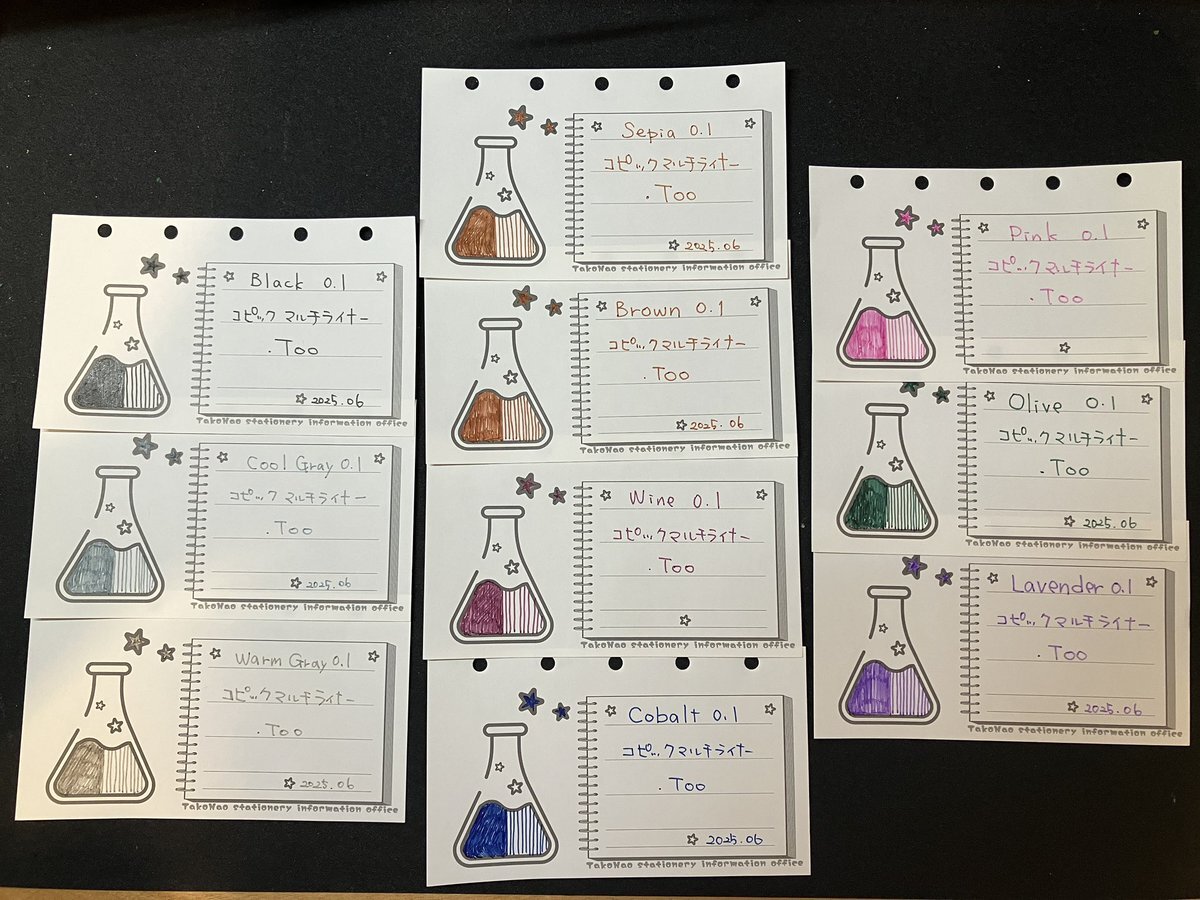 Black 0.1
コピックマルチライナー
.Too
2025.06
TakoNao stationery information office
Cool Gray 0.1
コピックマルチライナー
.Too
2025.06
TakoNao stationery information office
Warm Gray 0.1
コピックマルチライナー
.Too
2025.06
TakoNao stationery information office
Sepia 0.1
コピックマルチライナー
.Too
2025.06
TakoNao stationery information office
Brown 0.1
コピックマルチライナー
.Too
2025.06
TakoNao stationery information office
Wine 0.1
コピックマルチライナー
.Too
TakoNao stationery information office
Cobalt 0.1
コピックマルチライナー
.Too
2025.06
TakoNao stationery information office
Pink 0.1
コピックマルチライナー
.Too
TakoNao stationery information office
Olive 0.1
コピックマルチライナー
.Too
2025.06
TakoNao stationery information office
Lavender 0.1
コピックマルチライナー
.Too
2025.06
TakoNao stationery information office